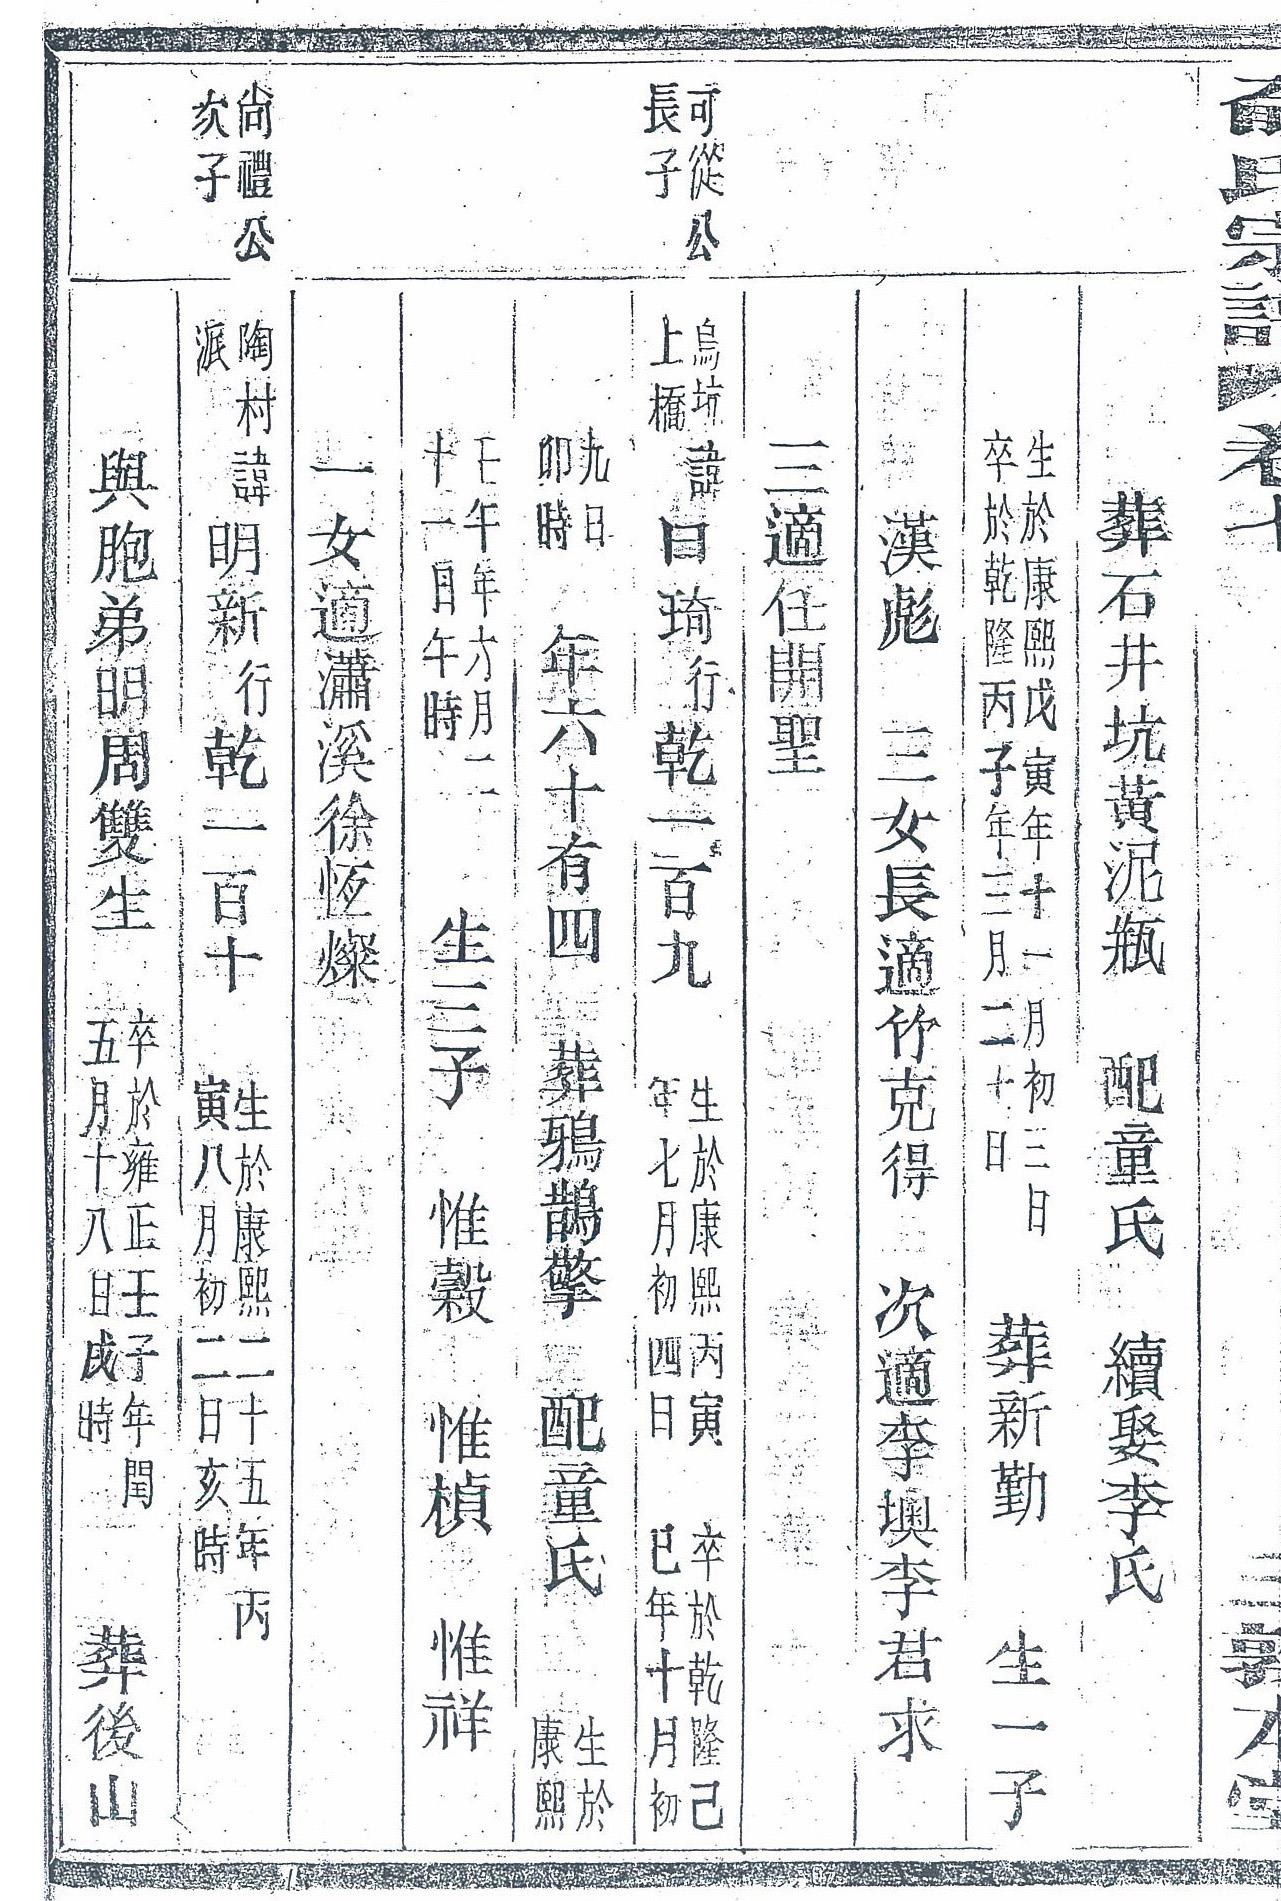 氏宗譜 卷十
葬石井坑黃泥瓶 配童氏 續娶李氏
生於康熙戊寅年十一月初三日
卒於乾隆丙子年三月二十日
葬新勤 生一子
漢彪 三女長適竹克得 次適李墺李君求
三適任開聖
可從公
長子
烏坑
上橋
諱曰琦行乾一百九
生於康熙丙寅
年七月初四日
卒於乾隆己
巳年十月初
九日
卯時
年六十有四 葬鴉鵲擎 配童氏
生於
康熙
壬午年六月二
十一日午時
生三子 惟榖 惟楨 惟祥
一女適瀟溪徐恆燦
尙禮公
次子
陶村
派
諱明新行乾一百十
生於康熙二十五年丙
寅八月初二日亥時
與胞弟明周雙生
卒於雍正壬子年閏
五月十八日戌時
葬後山